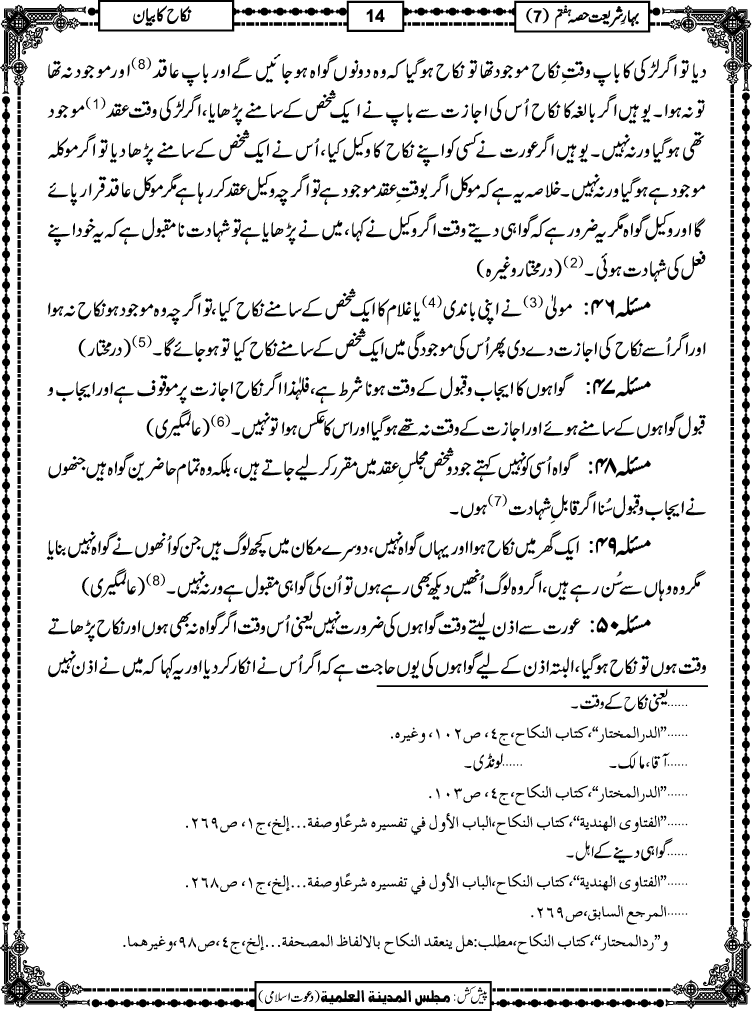 بہارِ شریعت حصہ ہفتم (7)
14
نکاح کا بیان
دیا تو اگر لڑکی کا باپ وقتِ نکاح موجود تھا تو نکاح ہوگیا کہ وہ دونوں گواہ ہو جائیں گے اور باپ عاقد (8) اور موجود نہ تھا
تو نہ ہوا۔ یوہیں اگر بالغہ کا نکاح اُس کی اجازت سے باپ نے ایک شخص کے سامنے پڑھایا، اگر لڑکی وقت عقد (1) موجود
تھی ہوگیا ورنہ نہیں۔ یوہیں اگر عورت نے کسی کو اپنے نکاح کا وکیل کیا، اُس نے ایک شخص کے سامنے پڑھا دیا تو اگر موکلہ
موجود ہے ہوگیا ورنہ نہیں۔ خلاصہ یہ ہے کہ موکل اگر بوقتِ عقد موجود ہے تو اگرچہ وکیل عقد کر رہا ہے مگر موکل عاقد قرار پائے
گا اور وکیل گواہ مگر یہ ضرور ہے کہ گواہی دیتے وقت اگر وکیل نے کہا، میں نے پڑھایا ہے تو شہادت نا مقبول ہے کہ یہ خود اپنے
فعل کی شہادت ہوئی۔ (2) (درمختار وغیرہ)
مسئلہ ۴۶: مولیٰ (3) نے اپنی باندی (4) یا غلام کا ایک شخص کے سامنے نکاح کیا، تو اگرچہ وہ موجود ہو نکاح نہ ہوا
اور اگر اُسے نکاح کی اجازت دے دی پھر اُس کی موجودگی میں ایک شخص کے سامنے نکاح کیا تو ہو جائے گا۔ (5) (درمختار)
مسئلہ ۴۷: گواہوں کا ایجاب و قبول کے وقت ہونا شرط ہے، فلہٰذا اگر نکاح اجازت پر موقوف ہے اور ایجاب و
قبول گواہوں کے سامنے ہوئے اور اجازت کے وقت نہ تھے ہوگیا اور اس کا عکس ہوا تو نہیں۔ (6) (عالمگیری)
مسئلہ ۴۸: گواہ اُسی کو نہیں کہتے جو دو شخص مجلسِ عقد میں مقرر کر لیے جاتے ہیں، بلکہ وہ تمام حاضرین گواہ ہیں جنھوں
نے ایجاب و قبول سُنا اگر قابلِ شہادت (7) ہوں۔
مسئلہ ۴۹: ایک گھر میں نکاح ہوا اور یہاں گواہ نہیں، دوسرے مکان میں کچھ لوگ ہیں جن کو اُنھوں نے گواہ نہیں بنایا
مگر وہ وہاں سے سُن رہے ہیں، اگر وہ لوگ اُنھیں دیکھ بھی رہے ہوں تو اُن کی گواہی مقبول ہے ورنہ نہیں۔ (8) (عالمگیری)
مسئلہ ۵۰: عورت سے اذن لیتے وقت گواہوں کی ضرورت نہیں یعنی اُس وقت اگر گواہ نہ بھی ہوں اور نکاح پڑھاتے
وقت ہوں تو نکاح ہوگیا، البتہ اذن کے لیے گواہوں کی یوں حاجت ہے کہ اگر اُس نے انکار کر دیا اور یہ کہا کہ میں نے اذن نہیں
......یعنی نکاح کے وقت۔
......”الدرالمختار“، کتاب النکاح، ج٤، ص١٠٢، وغیرہ.
......آقا، مالک۔ ......لونڈی۔
......”الدرالمختار“، کتاب النکاح، ج٤، ص١٠٣.
......”الفتاوی الھندیة“، کتاب النکاح، الباب الأول في تفسیره شرعًا وصفة...إلخ، ج١، ص٢٦٩.
......گواہی دینے کے اہل۔
......”الفتاوی الھندیة“، کتاب النکاح، الباب الأول في تفسیره شرعًا وصفة...إلخ، ج١، ص٢٦٨.
......المرجع السابق، ص٢٦٩.
و”ردالمحتار“، کتاب النکاح، مطلب: ھل ینعقد النکاح بالالفاظ المصحفة...إلخ، ج٤، ص٩٨، وغیرھما.
پیش کش: مجلس المدینة العلمیة (دعوت اسلامی)